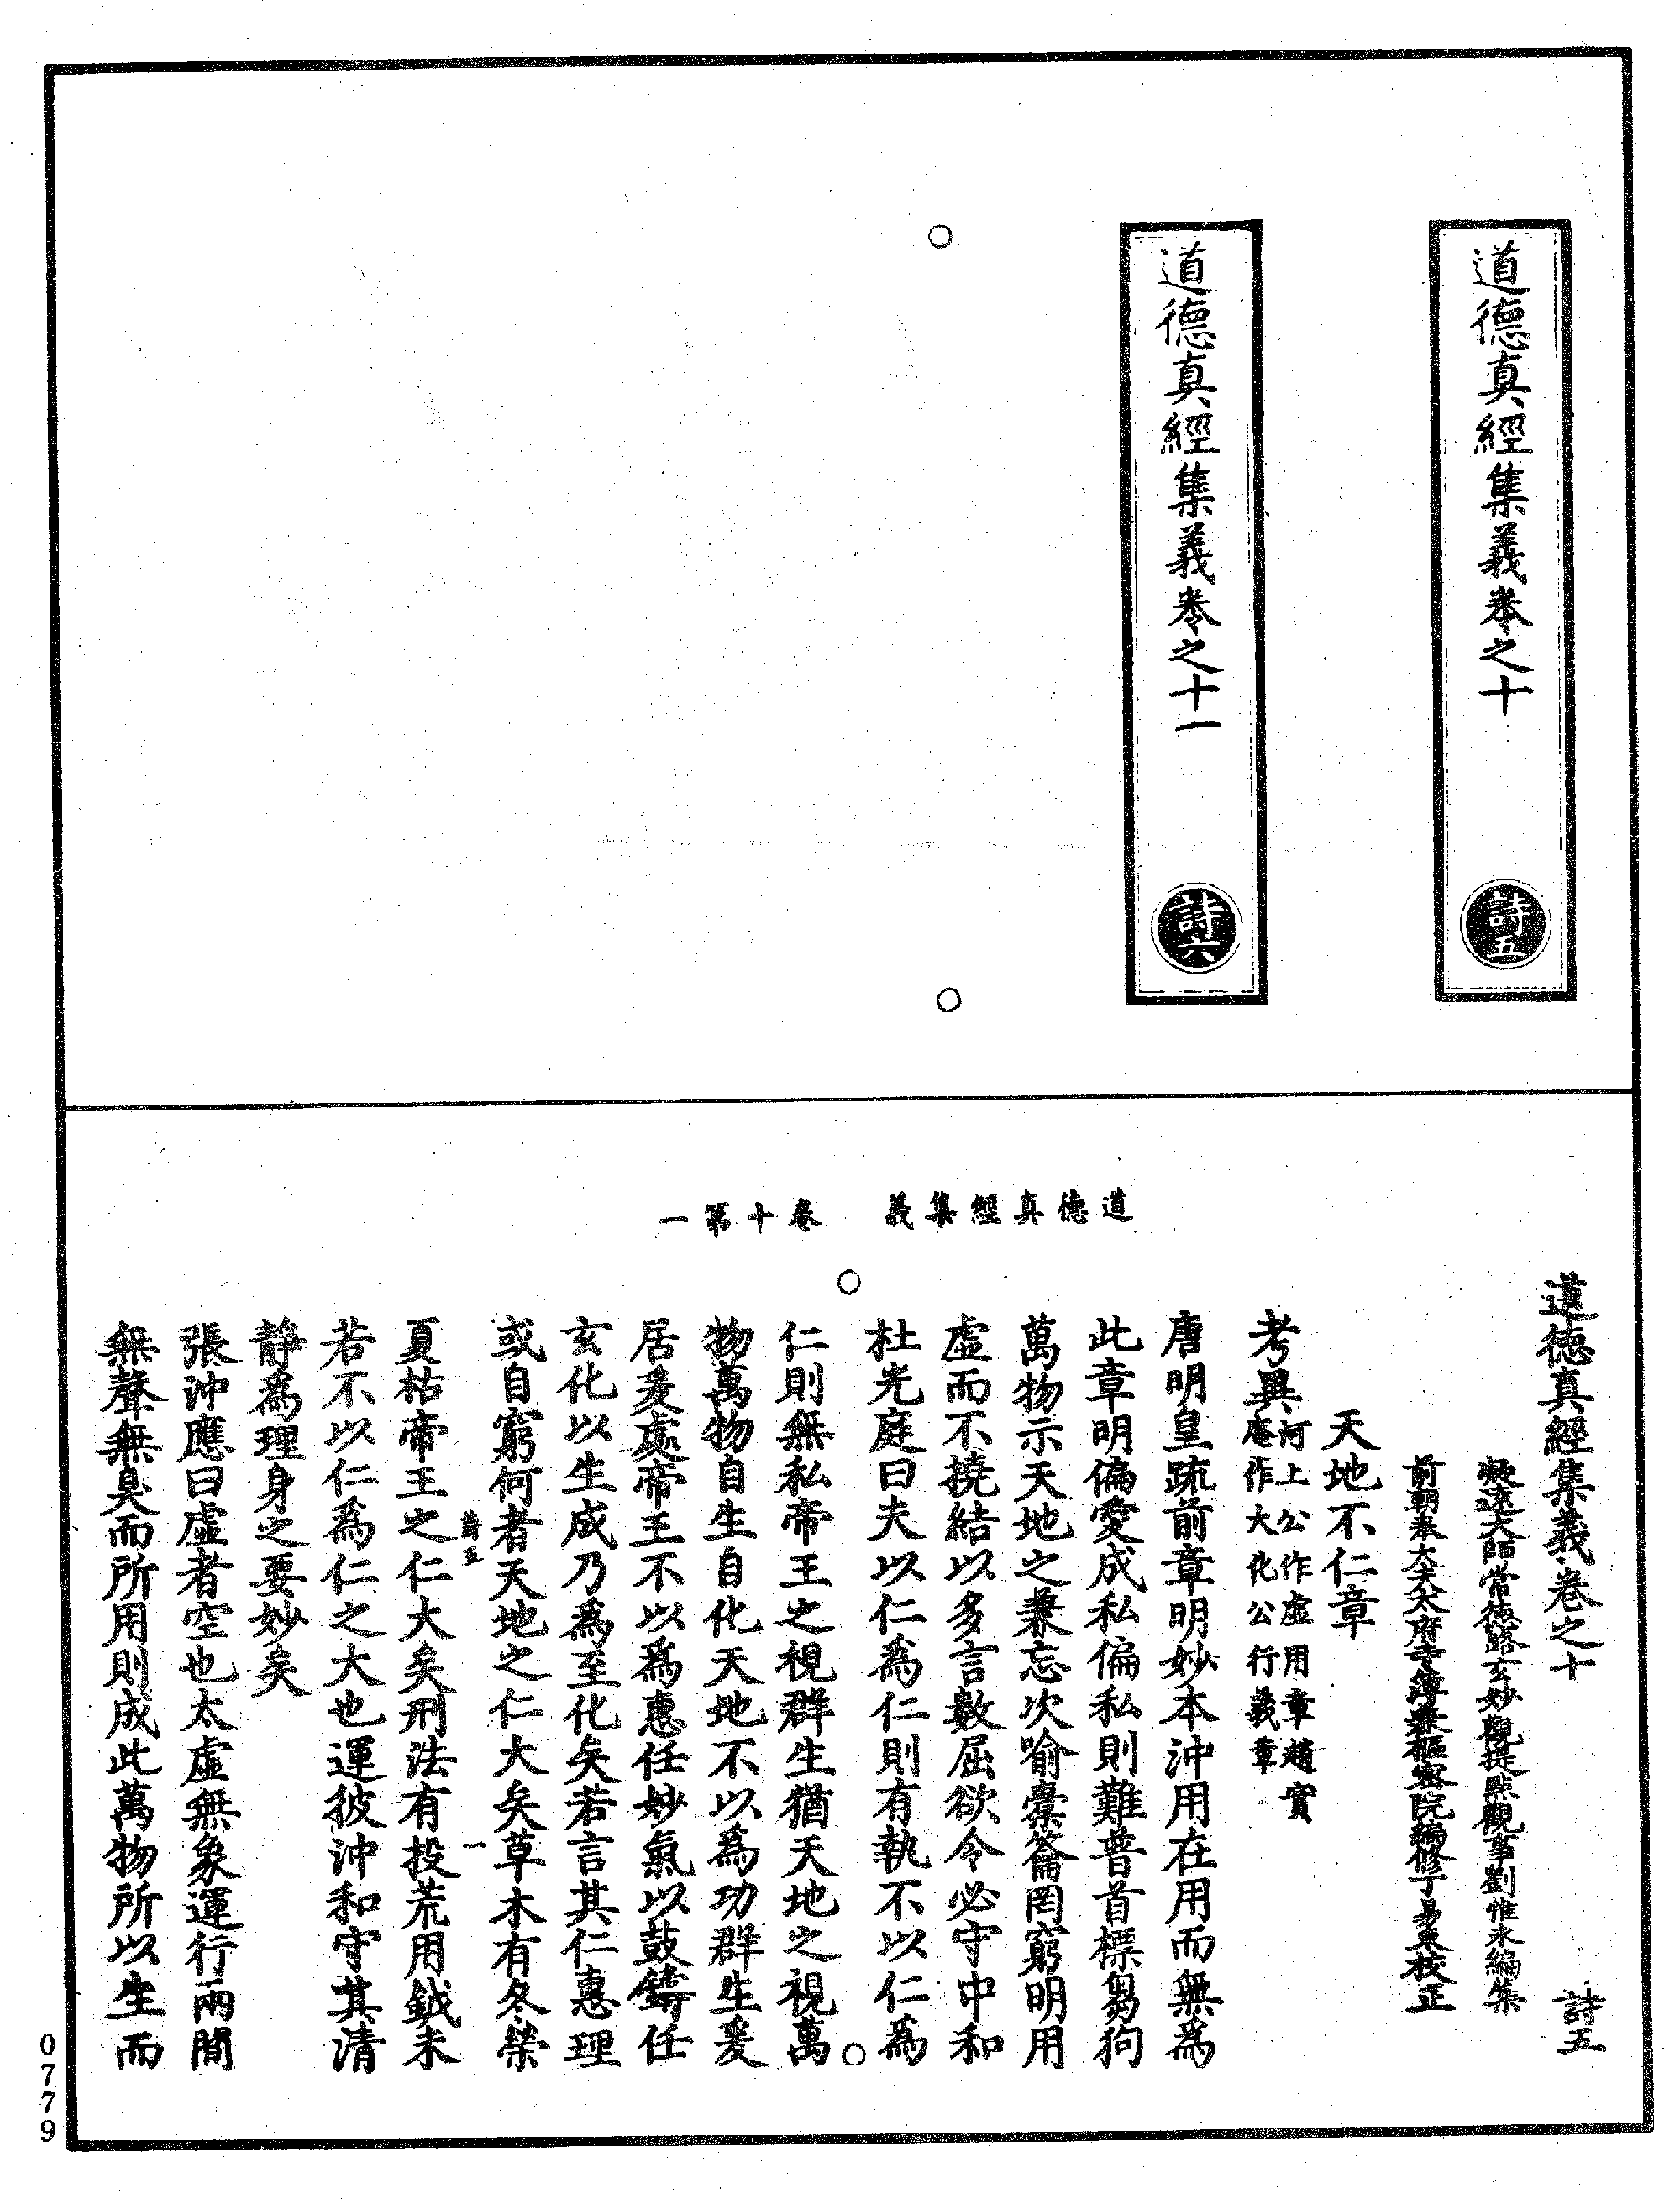 道德真經集義卷之十
詩五
道德真經集義卷之十一
詩六
道德真經集義 卷十第一
道德真經集義卷之十 詩五
凝遠大師常德路玄妙觀提點觀事劉惟永編集
前朝奉大夫太府寺簿兼樞密院編修丁易東校正
天地不仁章
考異河上公作虛用章趙實
庵作大化公行義章
唐明皇疏前章明妙本沖用在用而無為
此章明偏愛成私偏私則難普首標芻狗
萬物示天地之兼忘次喻橐籥罔窮明用
虛而不撓結以多言數屈欲令必守中和
杜光庭曰夫以仁為仁則有執不以仁為
仁則無私帝王之視群生猶天地之視萬
物萬物自生自化天地不以為功群生爰
居爰處帝王不以為惠任妙氣以鼓鑄任
玄化以生成乃為至化矣若言其仁惠理
或自窮何者天地之仁大矣草木有冬榮
詩五 一
夏枯帝王之仁大矣刑法有投荒用鉞未
若不以仁為仁之大也運彼沖和守其清
靜為理身之要妙矣
張沖應曰虛者空也太虛無象運行兩間
無聲無臭而所用則成此萬物所以生而
0779